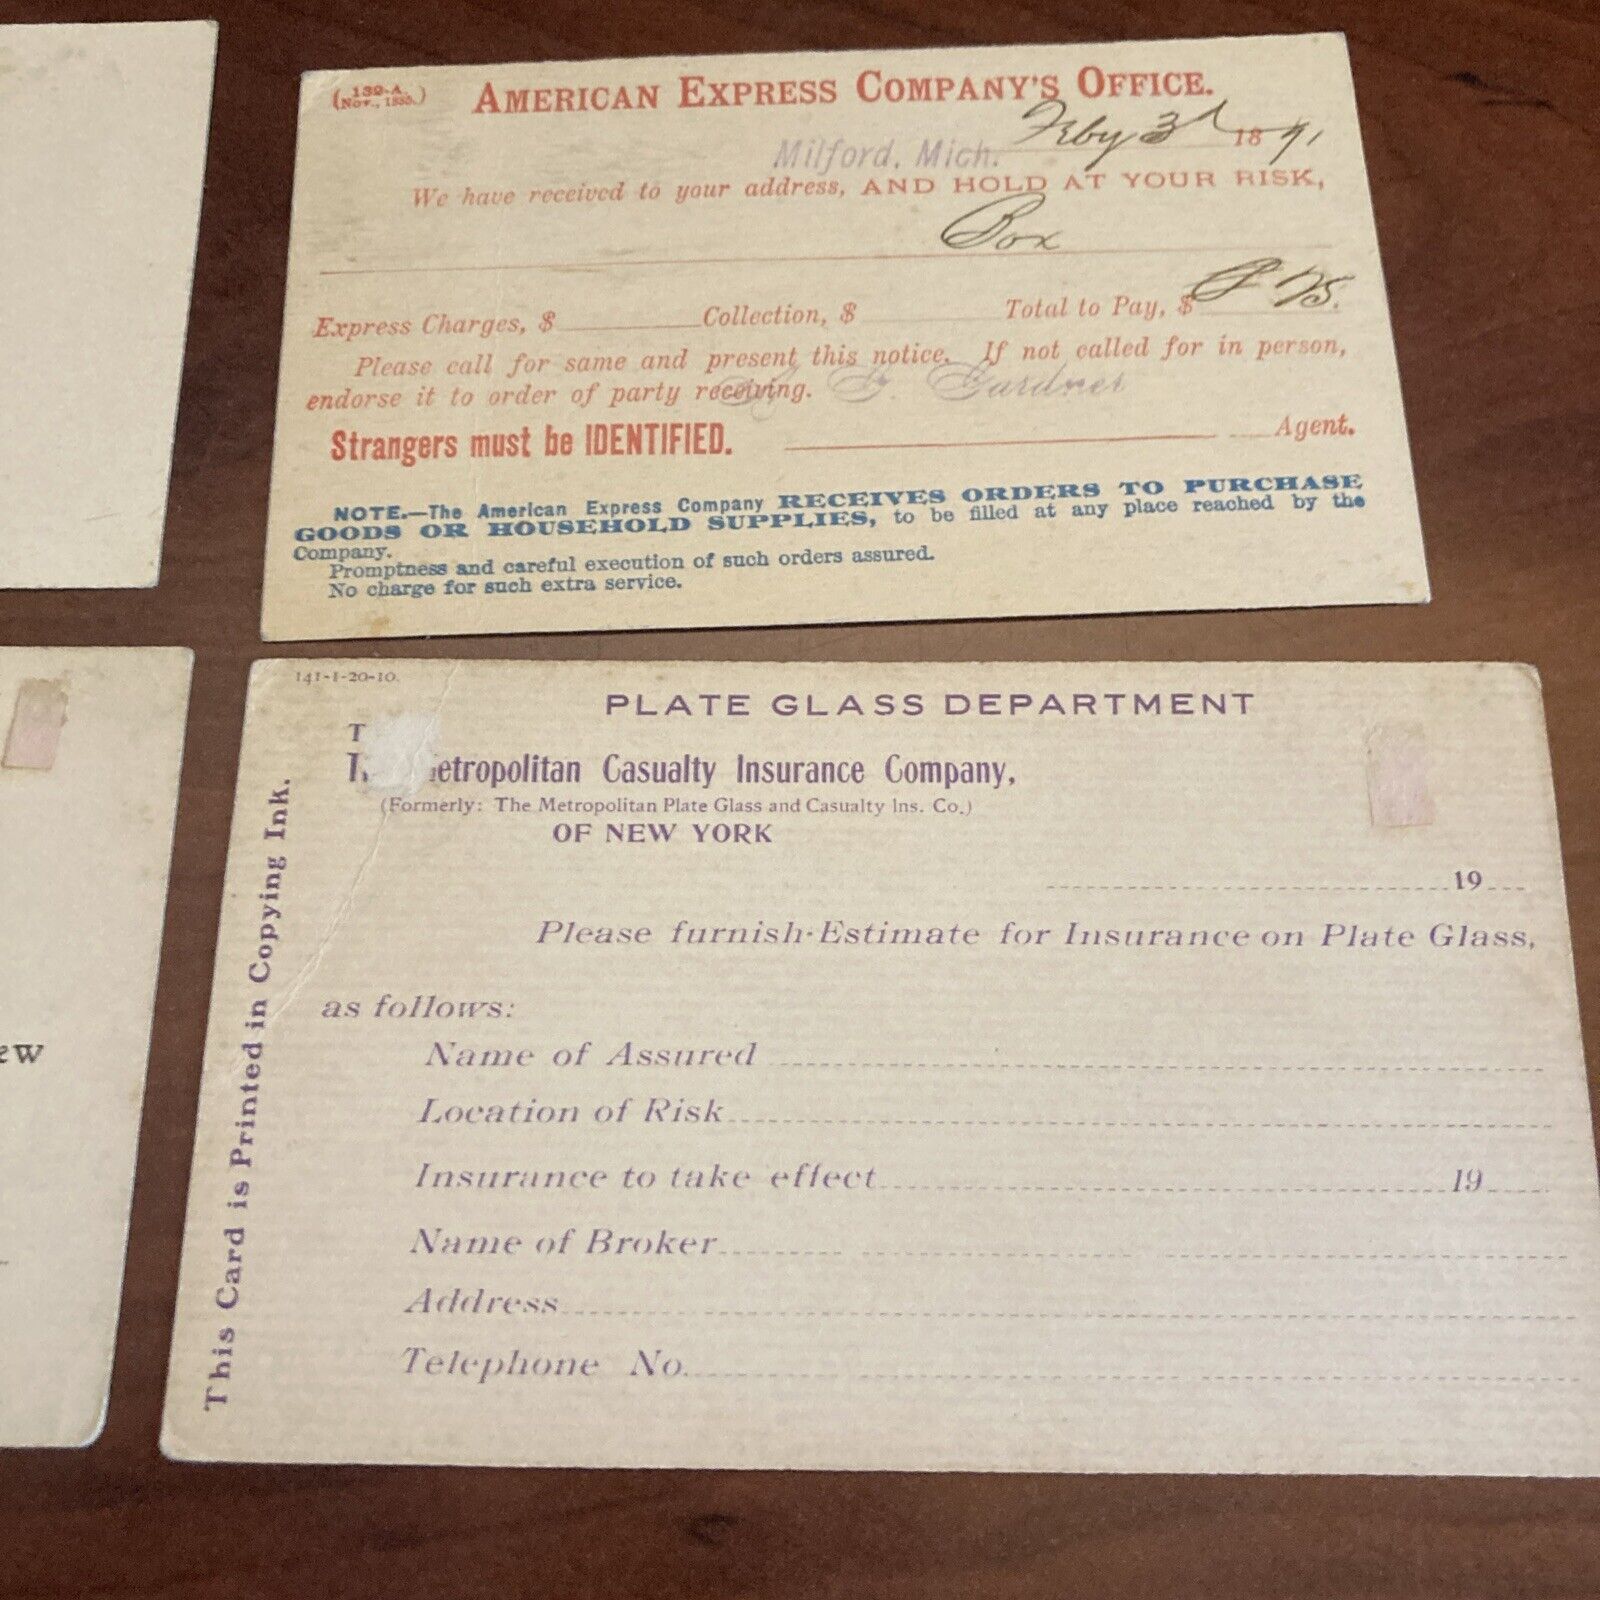 AMERICAN EXPRESS COMPANY'S OFFICE.
(132-A. Nov., 1888.)
Milford, Mich. Feby 3d 1891
We have received to your address, AND HOLD AT YOUR RISK,
Box
Express Charges, $ Collection, $ Total to Pay, $ 75.
Please call for same and present this notice. If not called for in person,
endorse it to order of party receiving.
Gardner
Strangers must be IDENTIFIED. Agent.
NOTE.—The American Express Company RECEIVES ORDERS TO PURCHASE
GOODS OR HOUSEHOLD SUPPLIES, to be filled at any place reached by the
Company.
Promptness and careful execution of such orders assured.
No charge for such extra service.
ew
141-1-20-10.
PLATE GLASS DEPARTMENT
etropolitan Casualty Insurance Company,
(Formerly: The Metropolitan Plate Glass and Casualty Ins. Co.)
OF NEW YORK
19
Please furnish Estimate for Insurance on Plate Glass,
as follows:
Name of Assured
Location of Risk
Insurance to take effect 19
Name of Broker
Address
Telephone No.
This Card is Printed in Copying Ink.